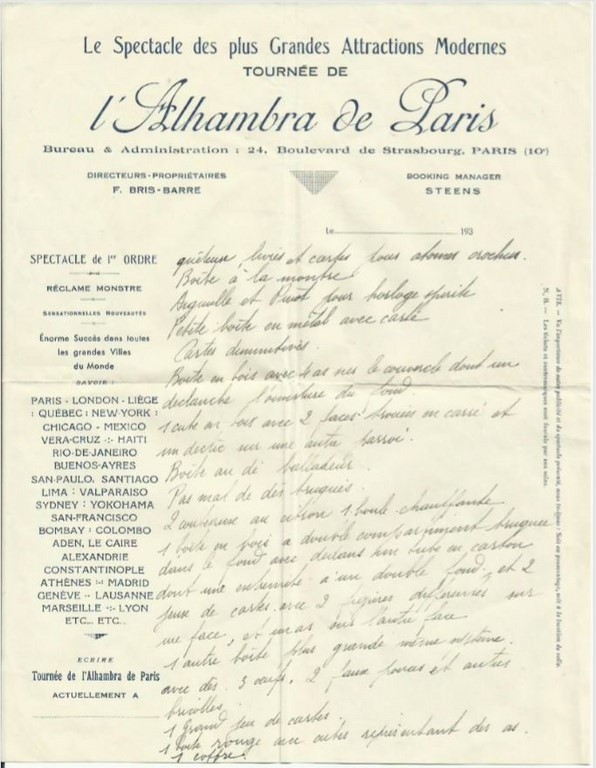 Le Spectacle des plus Grandes Attractions Modernes
TOURNÉE DE
l'Alhambra de Paris
Bureau & Administration : 24, Boulevard de Strasbourg, PARIS (10e)
DIRECTEURS-PROPRIÉTAIRES
F. BRIS-BARRE
BOOKING MANAGER
STEENS
Le 193
SPECTACLE de 1er ORDRE
RÉCLAME MONSTRE
SENSATIONNELLES NOUVEAUTÉS
Énorme Succès dans toutes
les grandes Villes
du Monde
SAVOIR :
PARIS - LONDON - LIÈGE
: QUÉBEC : NEW-YORK :
CHICAGO - MEXICO
VERA-CRUZ -:- HAITI
RIO-DE-JANEIRO
BUENOS-AYRES
SAN-PAULO, SANTIAGO
LIMA : VALPARAISO
SYDNEY : YOKOHAMA
SAN-FRANCISCO
BOMBAY : COLOMBO
ADEN, LE CAIRE
ALEXANDRIE
CONSTANTINOPLE
ATHÈNES -:- MADRID
GENÈVE -:- LAUSANNE
MARSEILLE -:- LYON
ETC... ETC..
ECRIRE
Tournée de l'Alhambra de Paris
ACTUELLEMENT A
livres et cartes pour atomes crochus.
Boîte à la montre
Aiguille et Pivot pour horloge spirite
Petite boîte en métal avec carte
Cartes diminutives.
Boîte en bois avec as le couvercle dont un
declanche du fond.
1 cube en bois avec 2 faces trouées en carré et
un declic sur une autre parroi.
Boîte au dé balladeur.
Pas mal de dés truqués.
2 au citron 1 boule chauffante
1 boîte en bois a double compartiment truquée
dans le fond avec dedans un tube en carton
dont une a un double fond, et 2
jeux de cartes avec 2 figures différentes sur
une face, et un as sur l'autre face
1 autre boîte plus grande même système.
avec des 3 oeufs, 2 faux pouces et autres
bricolles.
1 Grand jeu de cartes.
1 boîte rouge avec cubes représentant des as.
1 coffre.
AVIS. — Vu l'importance de notre publicité et du spectacle présenté, nous
N. B. — Les tickets et contremarques sont fournis par nos soins.